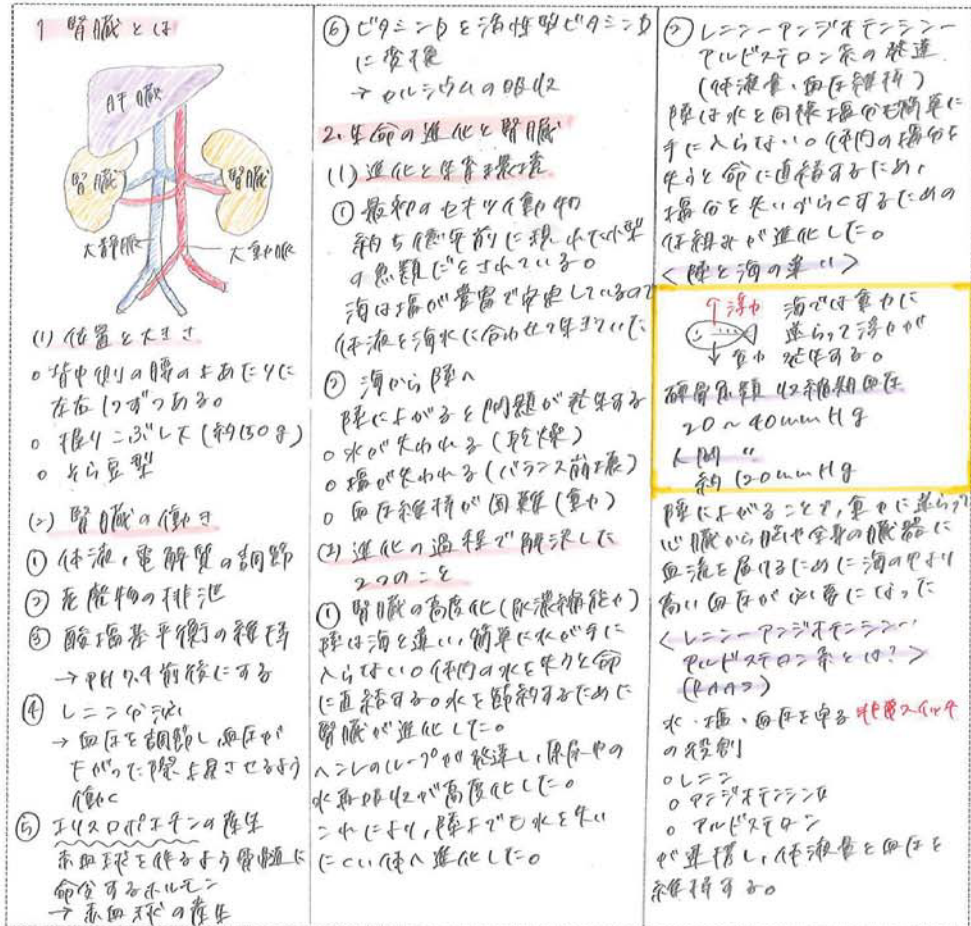 1 腎臓とは
肝臓
腎臓
腎臓
大静脈
大動脈
(1) 位置と大きさ
○ 背中側の腰の上あたりに
左右1つずつある。
○ 握りこぶし大(約150g)
○ そら豆型
(2) 腎臓の働き
① 体液,電解質の調節
② 老廃物の排泄
③ 酸塩基平衡の維持
→PH7.4前後にする
④ レニン分泌
→ 血圧を調節し,血圧が
下がった際上昇させるよう
働く
⑤ エリスロポエチンの産生
赤血球を作るよう骨髄に
命令するホルモン
→ 赤血球の産生
⑥ ビタミンDを活性型ビタミンD
に変換
→ カルシウムの吸収
2.生命の進化と腎臓
(1) 進化と生育環境
① 最初のセキツイ動物
約5億年前に現れた小型
の魚類だとされている。
海は塩が豊富で安定しているので
体液を海水に合わせて生きていた
② 海から陸へ
陸に上がると問題が発生する
○ 水が失われる(乾燥)
○ 塩が失われる(バランス崩壊)
○ 血圧維持が困難(重力)
(2) 進化の過程で解決した
2つのこと
① 腎臓の高度化(尿濃縮能力)
陸は海と違い,簡単に水が手に
入らない。体内の水を失うと命
に直結する。水を節約するために
腎臓が進化した。
ヘンレのループが発達し,原尿中の
水再吸収が高度化した。
これにより,陸上でも水を失い
にくい体へ進化した。
② レニンーアンジオテンシンー
アルドステロン系の発達
(体液量・血圧維持)
陸は水と同様塩分も簡単に
手に入らない。体内の塩分を
失うと命に直結するため,
塩分を失いづらくするための
仕組みが進化した。
<陸と海の違い>
↑浮力
↓重力
海では重力に
逆らって浮力が
発生する。
硬骨魚類 収縮期血圧
20~40mmHg
人間 〃
約120mmHg
陸に上がることで,重力に逆らって
心臓から脳や全身の臓器に
血流を届けるために海の中より
高い血圧が必要になった
<レニンーアンジオテンシンー
アルドステロン系とは?>
(RAAS)
水・塩・血圧を守る 非常スイッチ
の役割
○レニン
○アンジオテンシンⅡ
○ アルドステロン
が連携し,体液量と血圧を
維持する。